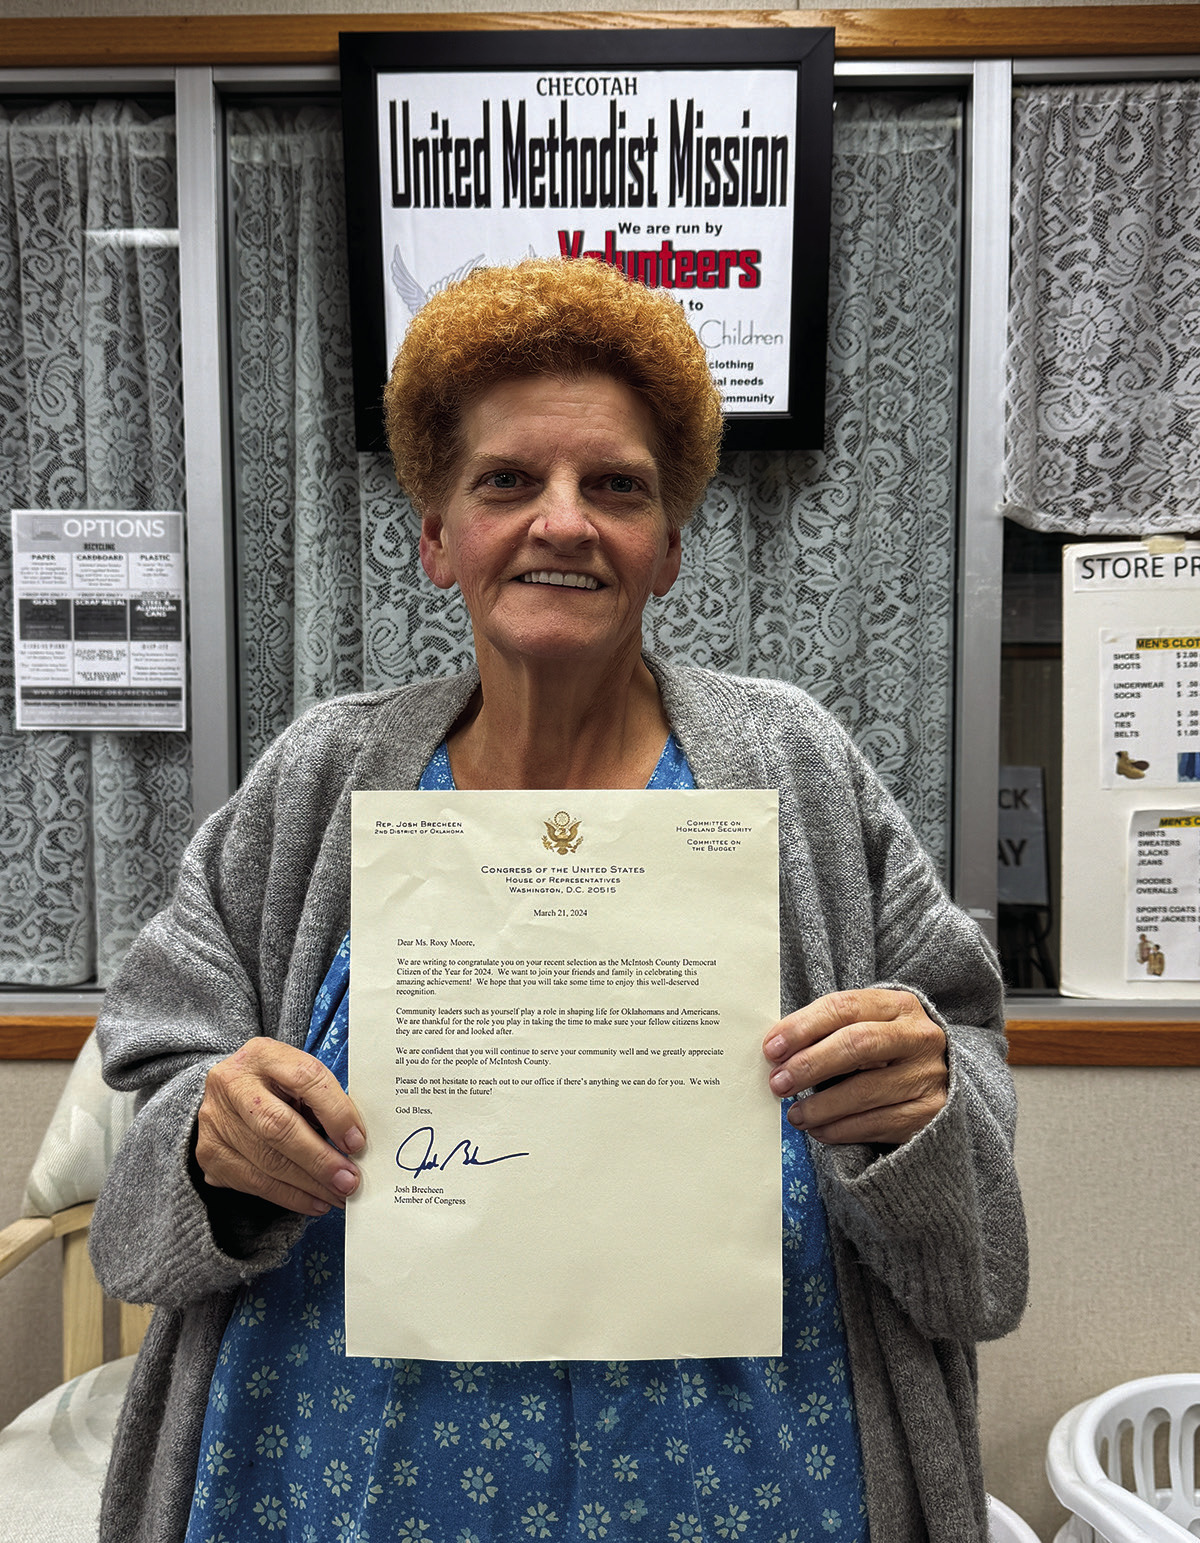 CHECOTAH
United Methodist Mission
We are run by
Volunteers
to
Children
clothing
needs
OPTIONS
RECYCLING
PAPER CARDBOARD PLASTIC
GLASS SCRAP METAL STEEL & ALUMINUM CANS
WWW.OPTIONSINC.ORG/RECYCLING
STORE PR
MEN'S CLOT
SHOES $ 2.00
BOOTS $ 3.00
UNDERWEAR $ .50
SOCKS $ .25
CAPS $ .50
TIES $ .50
BELTS $ 1.00
CK
AY
MEN'S C
SHIRTS
SWEATERS
SLACKS
JEANS
HOODIES
OVERALLS
SPORTS COATS
LIGHT JACKETS
SUITS
REP. JOSH BRECHEEN
2ND DISTRICT OF OKLAHOMA
COMMITTEE ON
HOMELAND SECURITY
COMMITTEE ON
THE BUDGET
CONGRESS OF THE UNITED STATES
HOUSE OF REPRESENTATIVES
WASHINGTON, D.C. 20515
March 21, 2024
Dear Ms. Roxy Moore,
We are writing to congratulate you on your recent selection as the McIntosh County Democrat
Citizen of the Year for 2024. We want to join your friends and family in celebrating this
amazing achievement! We hope that you will take some time to enjoy this well-deserved
recognition.
Community leaders such as yourself play a role in shaping life for Oklahomans and Americans.
We are thankful for the role you play in taking the time to make sure your fellow citizens know
they are cared for and looked after.
We are confident that you will continue to serve your community well and we greatly appreciate
all you do for the people of McIntosh County.
Please do not hesitate to reach out to our office if there's anything we can do for you. We wish
you all the best in the future!
God Bless,
Josh Brecheen
Member of Congress